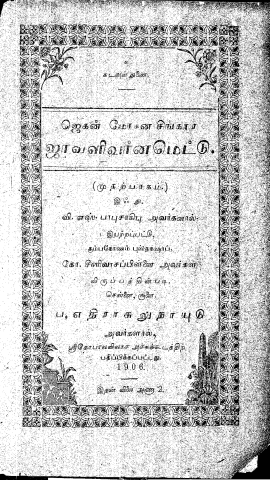 உ
கடவுள் துணை.
ஜெகன் மோகன சிங்கார
ஜாவளிவர்னமெட்டு.
(முதற்பாகம்.)
இஃது.
வி. எஸ். பாபுசாகிபு அவர்களால்
இயற்றப்பட்டு,
கோ. சீனிவாசப்பிள்ளை அவர்கள்
விருப்பத்தின்படி.
சென்னை, சூளை
ப. எதிராசுலுநாயுடு
அவர்களால்,
ஸ்ரீகோபாலவிலாச அச்சுக்கூடத்திற்
பதிப்பிக்கப்பட்டது.
1906.
இதன் விலை அணா 2.